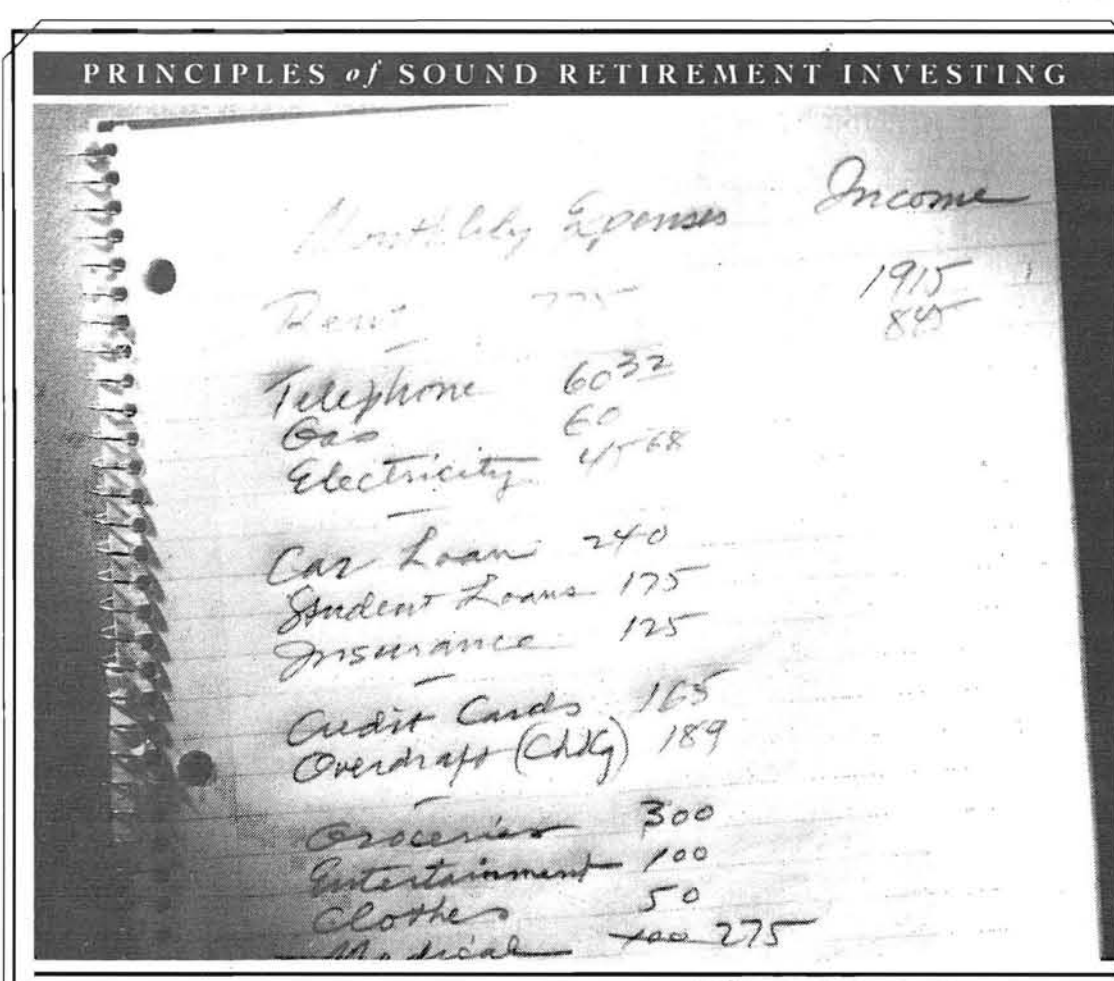 PRINCIPLES of SOUND RETIREMENT INVESTING
Monthlely Expenses Income
Rent 775 1915
845
Telephone 60 32
Gas 60
Electricity 45 68
Car Loan 240
Student Loans 175
Insurance 125
Credit Cards 165
Overdraft (ChKg) 189
Groceries 300
Entertainment 100
Clothes 50
Medical 100 275